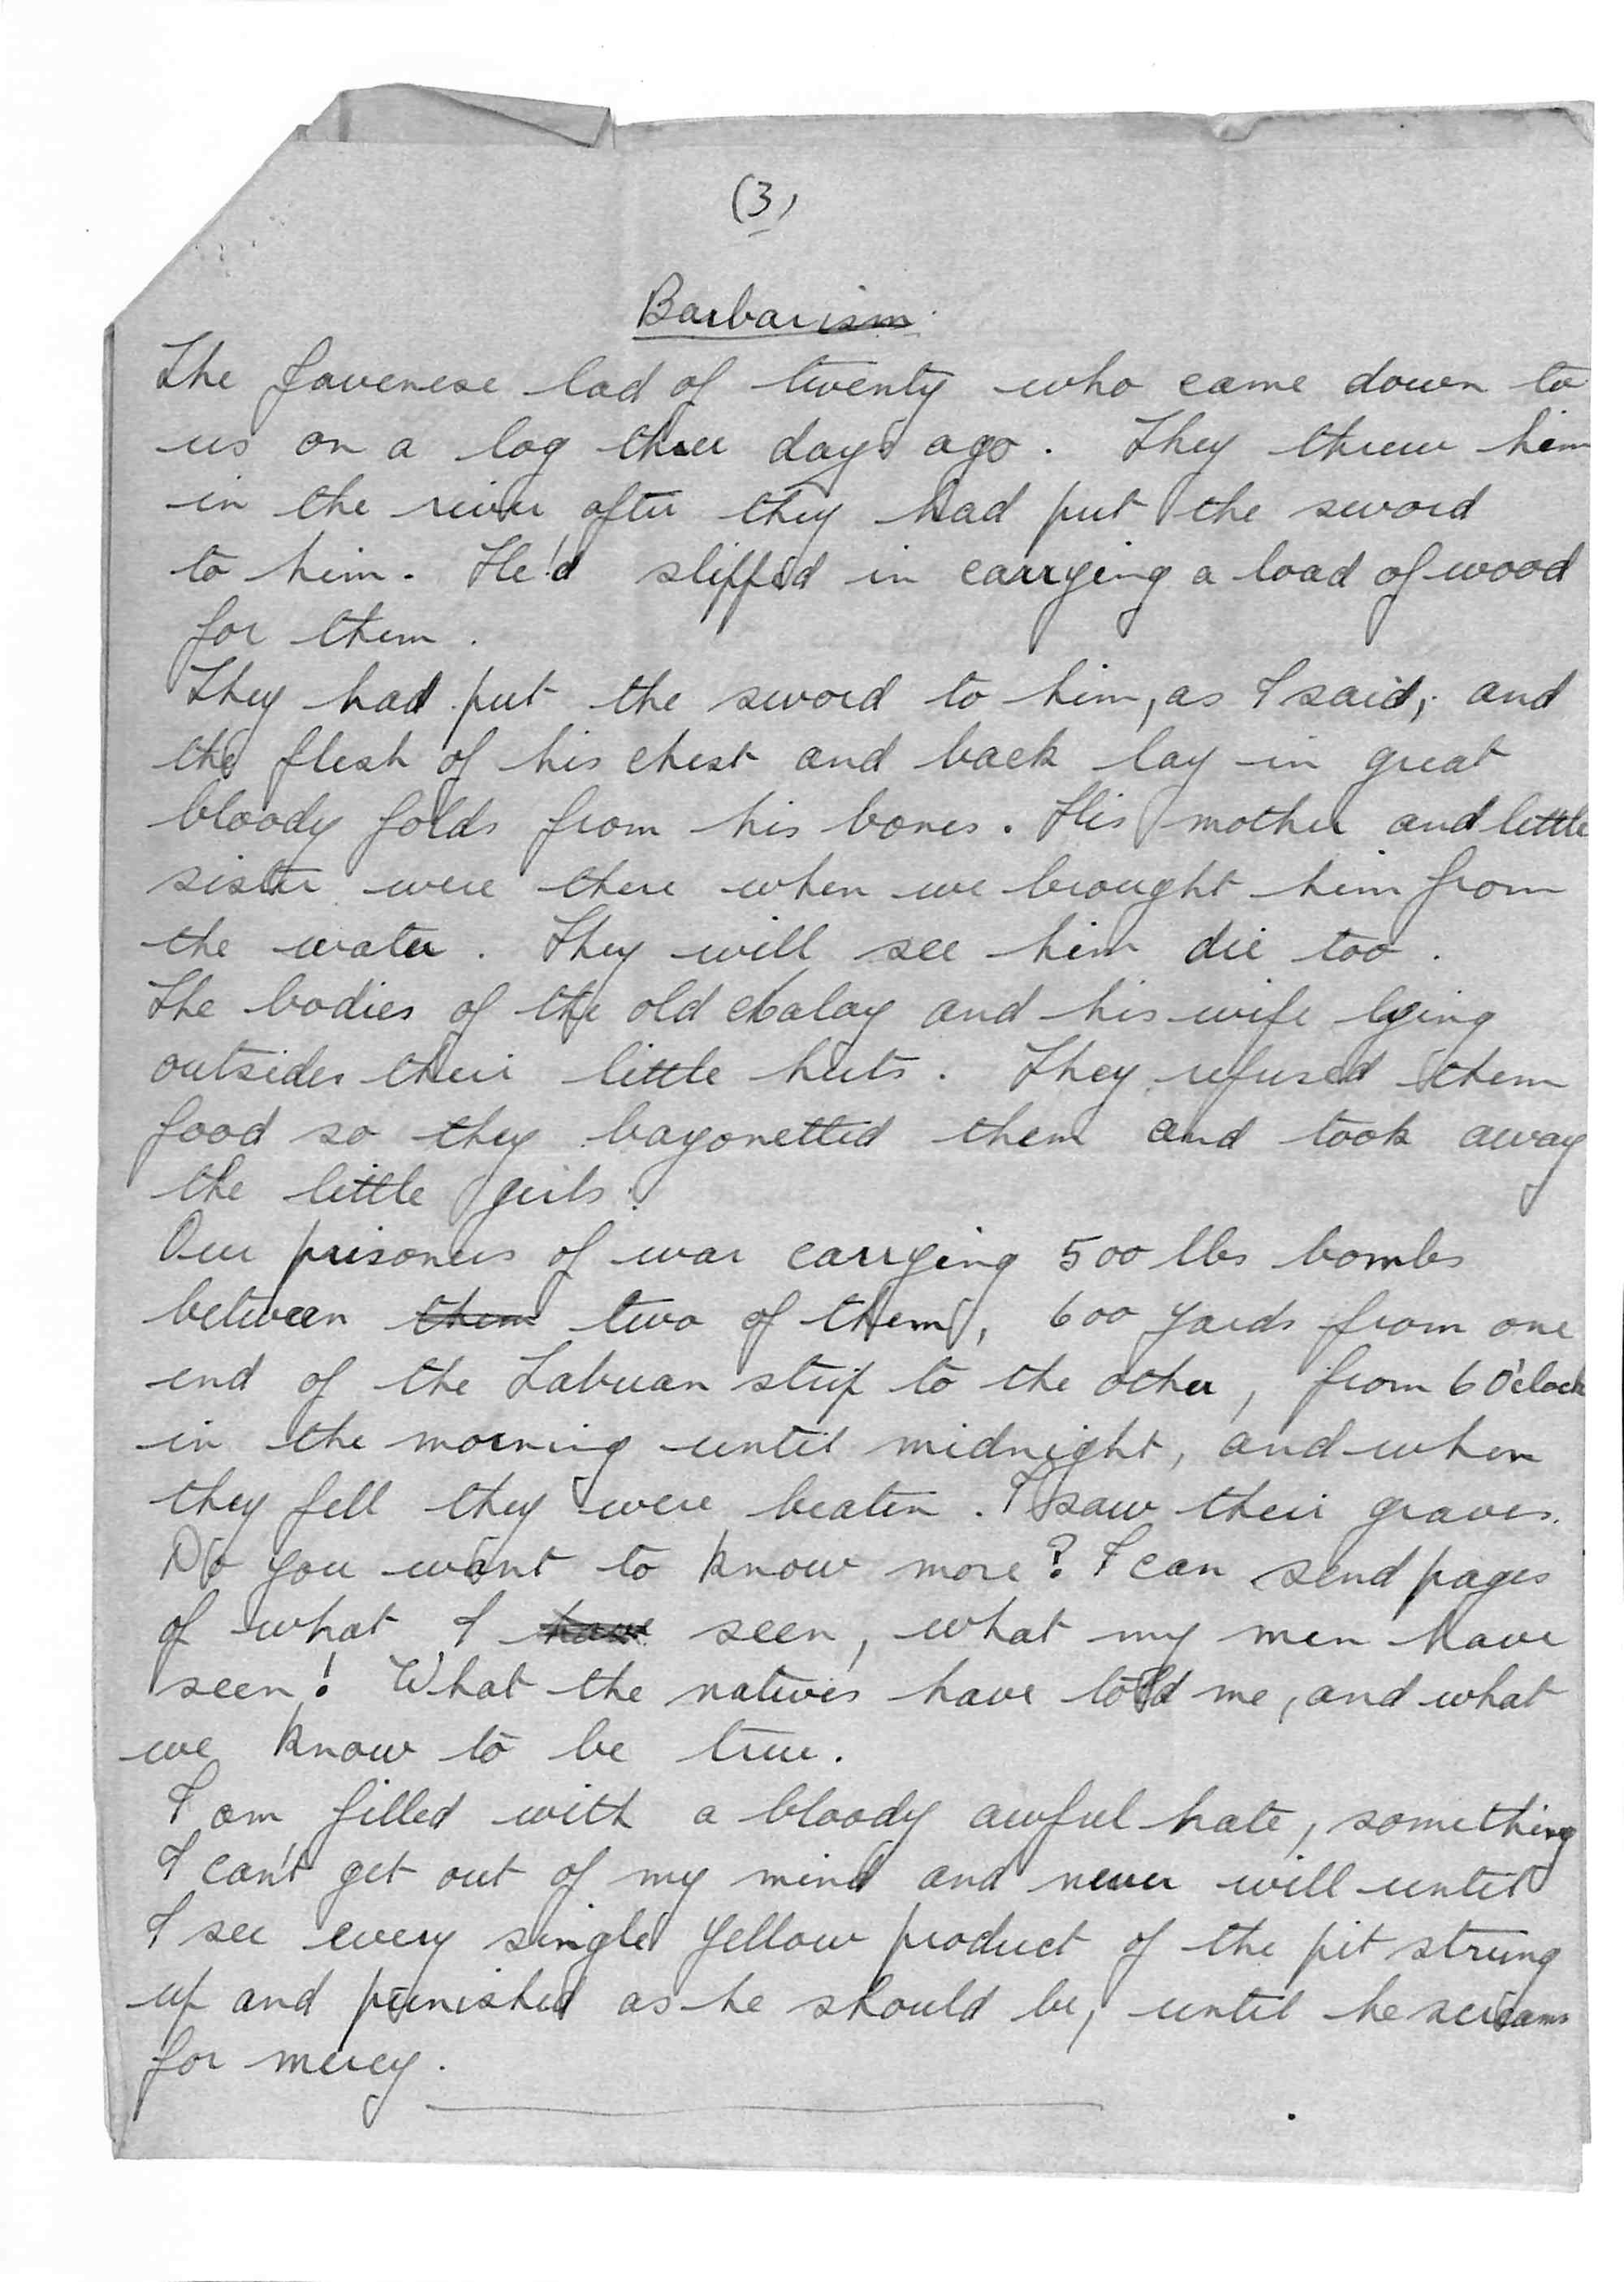 (3)
Barbarism.
The Javenese lad of twenty who came down to
us on a log three days ago. They threw him
in the river after they had put the sword
to him. He'd slipped in carrying a load of wood
for them.
They had put the sword to him, as I said; and
the flesh of his chest and back lay in great
bloody folds from his bones. His mother and little
sister were there when we brought him from
the water. They will see him die too.
The bodies of the old Malay and his wife lying
outsides their little huts. They refused them
food so they bayonetted them and took away
the little girls.
Our prisoners of war carrying 500 lbs bombs
between them two of them, 600 yards from one
end of the Labuan strip to the other, from 6 O'clock
in the morning until midnight, and when
they fell they were beaten. I saw their graves.
Do you want to know more? I can send pages
of what I have seen, what my men have
seen! What the natives have told me, and what
we know to be true.
I am filled with a bloody awful hate, something
I can't get out of my mind and never will until
I see every single yellow product of the pit strung
up and punished as he should be, until he screams
for mercy.